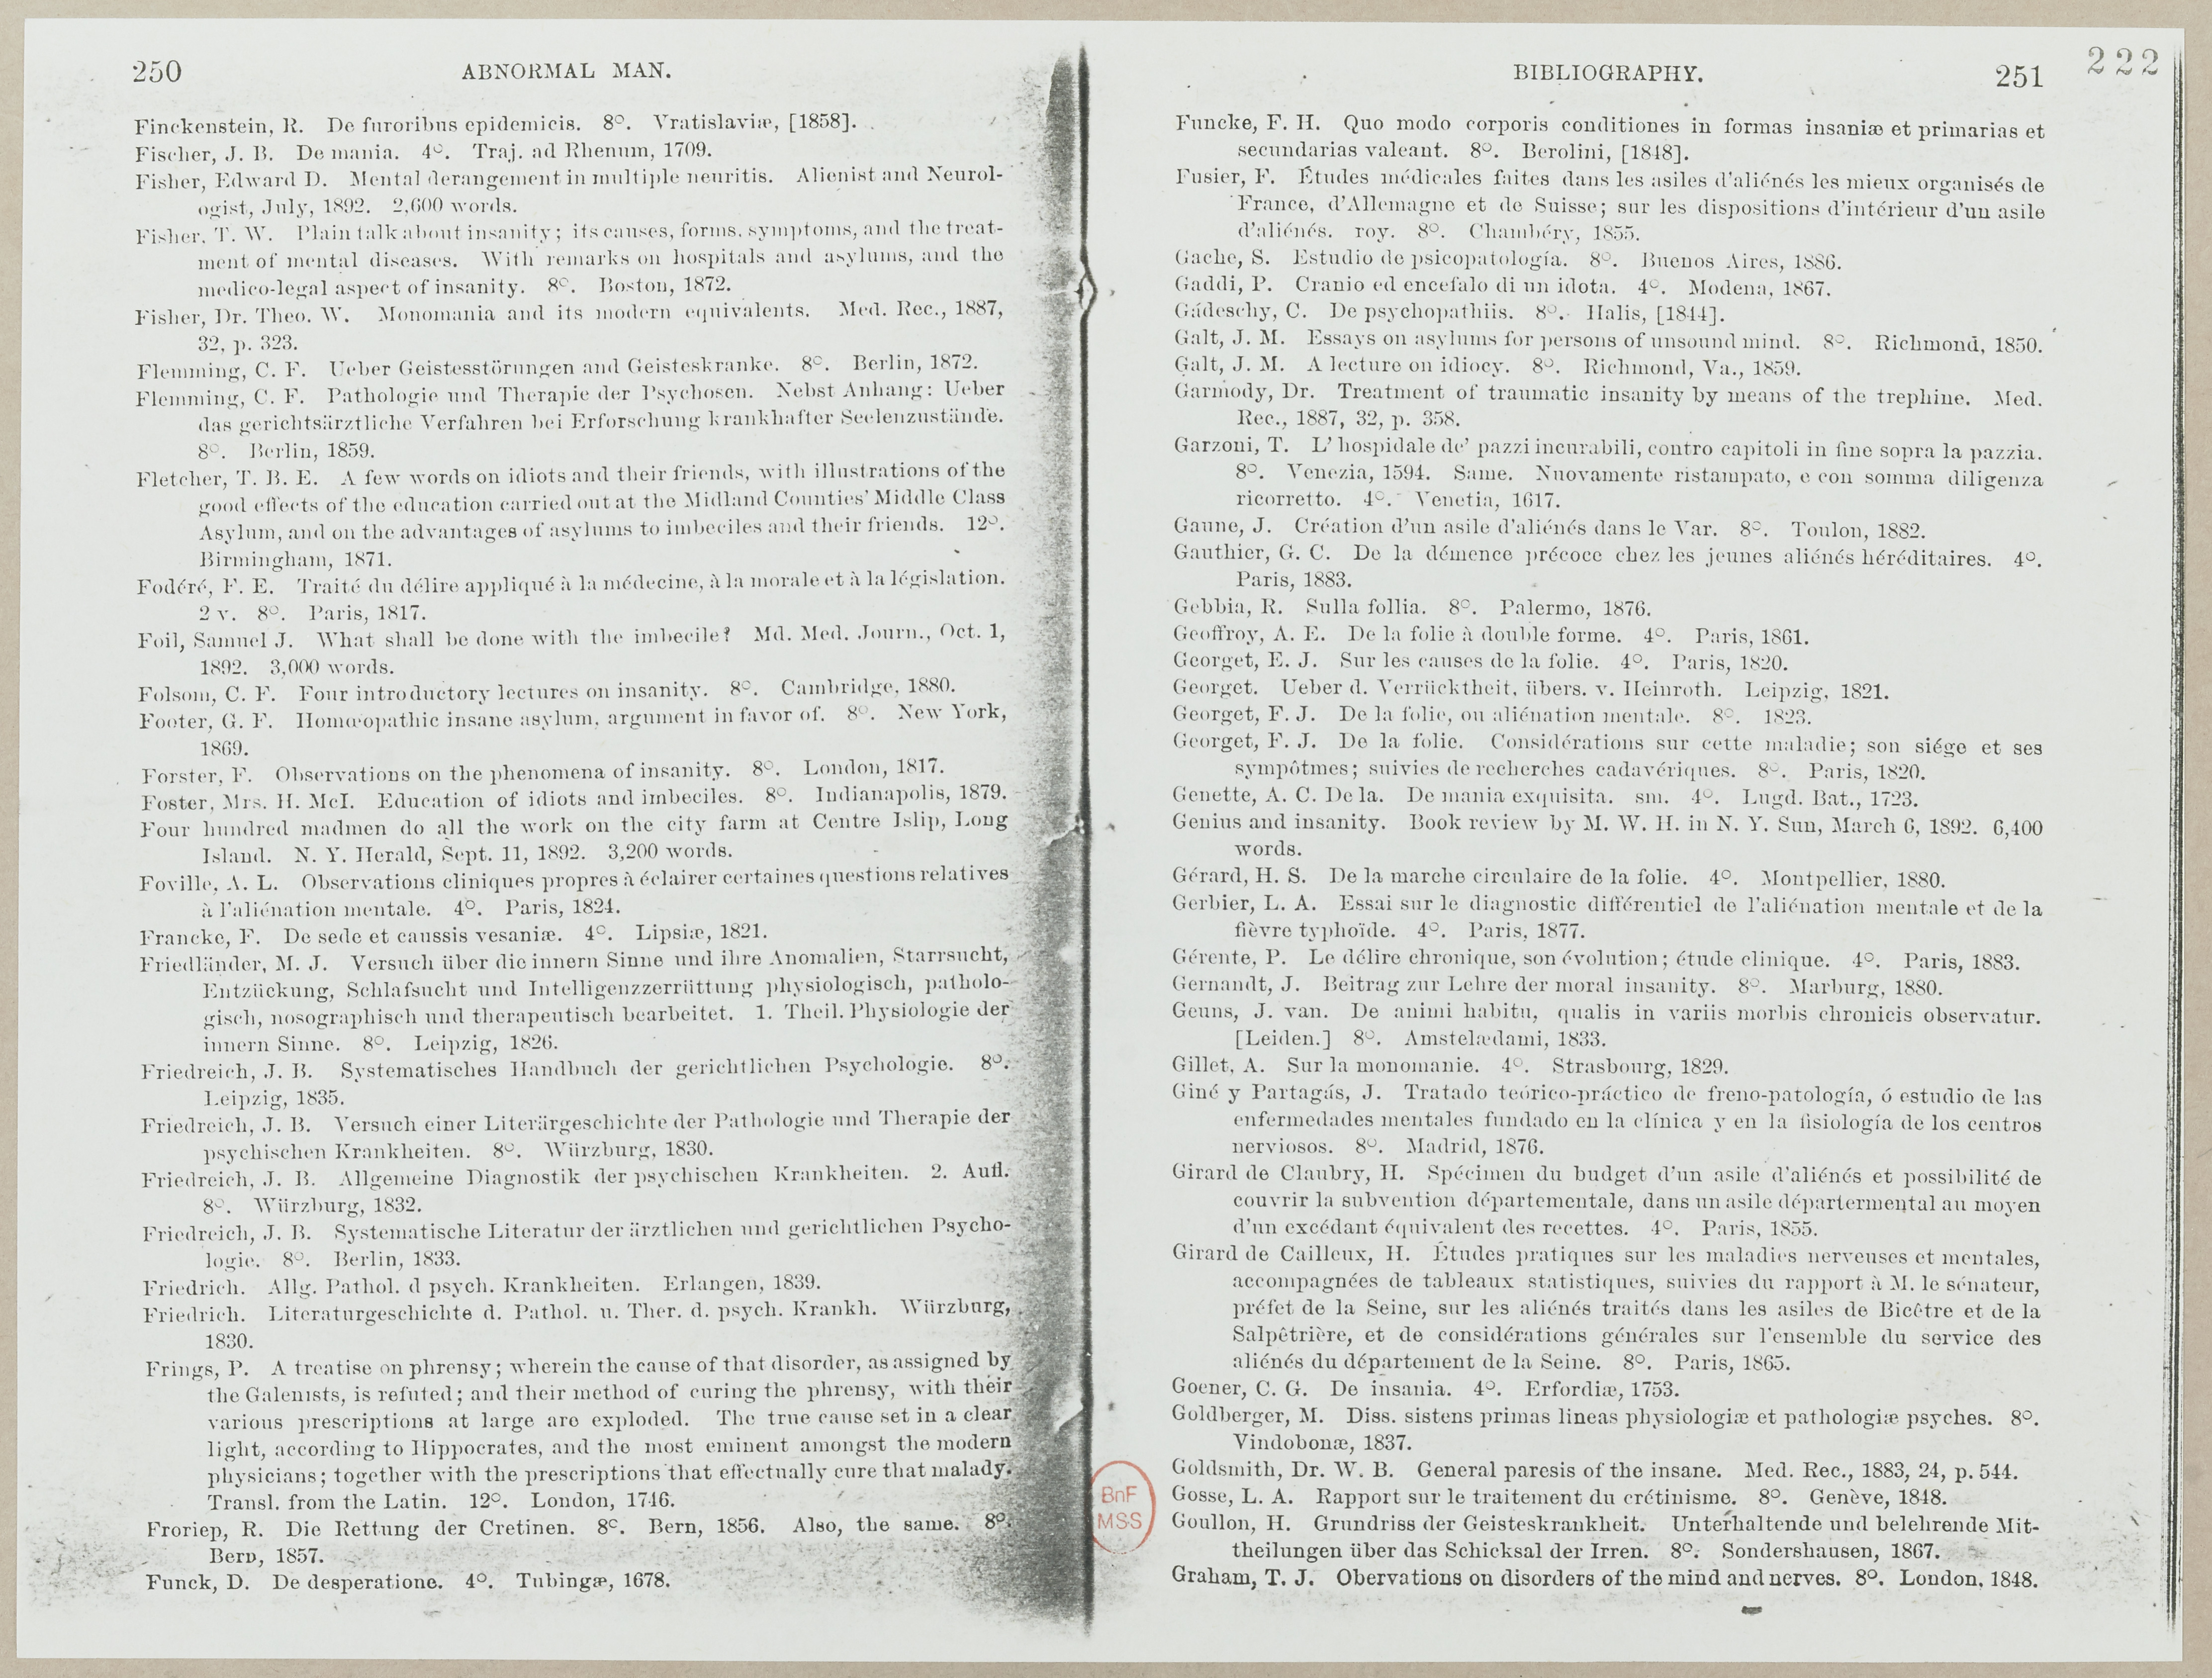 250
ABNORMAL MAN.
Finckenstein, R. De furoribus epidemicis. 8°. Vratislaviæ, [1858].
Fischer, J. B. De mania. 4°. Traj. ad Rhenum, 1709.
Fisher, Edward D. Mental derangement in multiple neuritis. Alienist and Neurol-
ogist, July, 1892. 2,600 words.
Fisher, T. W. Plain talk about insanity; its causes, forms, symptoms, and the treat-
ment of mental diseases. With remarks on hospitals and asylums, and the
medico-legal aspect of insanity. 8°. Boston, 1872.
Fisher, Dr. Theo. W. Monomania and its modern equivalents. Med. Rec., 1887,
32, p. 323.
Flemming, C. F. Ueber Geistesstörungen and Geisteskranke. 8°. Berlin, 1872.
Flemming, C. F. Pathologie und Therapie der Psychosen. Nebst Anhang: Ueber
das gerichtsärztliche Verfahren bei Erforschung krankhafter Seelenzustände.
8°. Berlin, 1859.
Fletcher, T. B. E. A few words on idiots and their friends, with illustrations of the
good effects of the education carried out at the Midland Counties' Middle Class
Asylum, and on the advantages of asylums to imbeciles and their friends. 12°.
Birmingham, 1871.
Fodéré, F. E. Traité du délire appliqué à la médecine, à la morale et à la législation.
2 v. 8°. Paris, 1817.
Foil, Samuel J. What shall be done with the imbecile? Md. Med. Journ., Oct. 1,
1892. 3,000 words.
Folsom, C. F. Four introductory lectures on insanity. 8°. Cambridge, 1880.
Footer, G. F. Homœopathic insane asylum, argument in favor of. 8°. New York,
1869.
Forster, F. Observations on the phenomena of insanity. 8°. London, 1817.
Foster, Mrs. H. McI. Education of idiots and imbeciles. 8°. Indianapolis, 1879.
Four hundred madmen do all the work on the city farm at Centre Islip, Long
Island. N. Y. Herald, Sept. 11, 1892. 3,200 words.
Foville, A. L. Observations cliniques propres à éclairer certaines questions relatives
à l'aliénation mentale. 4°. Paris, 1824.
Francke, F. De sede et caussis vesaniæ. 4°. Lipsiæ, 1821.
Friedländer, M. J. Versuch über die innern Sinne und ihre Anomalien, Starrsucht,
Entzückung, Schlafsucht und Intelligenzzerrüttung physiologisch, patholo-
gisch, nosographisch und therapeutisch bearbeitet. 1. Theil. Physiologie der
innern Sinne. 8°. Leipzig, 1826.
Friedreich, J. B. Systematisches Handbuch der gerichtlichen Psychologie. 8°.
Leipzig, 1835.
Friedreich, J. B. Versuch einer Literärgeschichte der Pathologie und Therapie der
psychischen Krankheiten. 8°. Würzburg, 1830.
Friedreich, J. B. Allgemeine Diagnostik der psychischen Krankheiten. 2. Aufl.
8°. Würzburg, 1832.
Friedreich, J. B. Systematische Literatur der ärztlichen und gerichtlichen Psycho-
logie. 8°. Berlin, 1833.
Friedrich. Allg. Pathol. d psych. Krankheiten. Erlangen, 1839.
Friedrich. Literaturgeschichte d. Pathol. u. Ther. d. psych. Krankh. Würzburg,
1830.
Frings, P. A treatise on phrensy; wherein the cause of that disorder, as assigned by
the Galenists, is refuted; and their method of curing the phrensy, with their
various prescriptions at large are exploded. The true cause set in a clear
light, according to Hippocrates, and the most eminent amongst the modern
physicians; together with the prescriptions that effectually cure that malady.
Transl. from the Latin. 12°. London, 1746.
Froriep, R. Die Rettung der Cretinen. 8°. Bern, 1856. Also, the same. 8°.
Bern, 1857.
Funck, D. De desperatione. 4°. Tubingæ, 1678.
BIBLIOGRAPHY.
251
222
Funcke, F. H. Quo modo corporis conditiones in formas insaniæ et primarias et
secundarias valeant. 8°. Berolini, [1848].
Fusier, F. Études médicales faites dans les asiles d'aliénés les mieux organisés de
France, d'Allemagne et de Suisse; sur les dispositions d'intérieur d'un asile
d'aliénés. roy. 8°. Chambéry, 1855.
Gache, S. Estudio de psicopatología. 8°. Buenos Aires, 1886.
Gaddi, P. Cranio ed encefalo di un idota. 4°. Modena, 1867.
Gádeschy, C. De psychopathiis. 8°. Halis, [1844].
Galt, J. M. Essays on asylums for persons of unsound mind. 8°. Richmond, 1850.
Galt, J. M. A lecture on idiocy. 8°. Richmond, Va., 1859.
Garmody, Dr. Treatment of traumatic insanity by means of the trephine. Med.
Rec., 1887, 32, p. 358.
Garzoni, T. L' hospidale de' pazzi incurabili, contro capitoli in fine sopra la pazzia.
8°. Venezia, 1594. Same. Nuovamente ristampato, e con somma diligenza
ricorretto. 4°. Venetia, 1617.
Gaune, J. Création d'un asile d'aliénés dans le Var. 8°. Toulon, 1882.
Gauthier, G. C. De la démence précoce chez les jeunes aliénés héréditaires. 4°.
Paris, 1883.
Gebbia, R. Sulla follia. 8°. Palermo, 1876.
Geoffroy, A. E. De la folie à double forme. 4°. Paris, 1861.
Georget, E. J. Sur les causes de la folie. 4°. Paris, 1820.
Georget. Ueber d. Verrücktheit, übers. v. Heinroth. Leipzig, 1821.
Georget, F. J. De la folie, ou aliénation mentale. 8°. 1823.
Georget, F. J. De la folie. Considérations sur cette maladie; son siége et ses
sympôtmes; suivies de recherches cadavériques. 8°. Paris, 1820.
Genette, A. C. De la. De mania exquisita. sm. 4°. Lugd. Bat., 1723.
Genius and insanity. Book review by M. W. H. in N. Y. Sun, March 6, 1892. 6,400
words.
Gérard, H. S. De la marche circulaire de la folie. 4°. Montpellier, 1880.
Gerbier, L. A. Essai sur le diagnostic différentiel de l'aliénation mentale et de la
fièvre typhoïde. 4°. Paris, 1877.
Gérente, P. Le délire chronique, son évolution; étude clinique. 4°. Paris, 1883.
Gernandt, J. Beitrag zur Lehre der moral insanity. 8°. Marburg, 1880.
Geuns, J. van. De animi habitu, qualis in variis morbis chronicis observatur.
[Leiden.] 8°. Amstelædami, 1833.
Gillet, A. Sur la monomanie. 4°. Strasbourg, 1829.
Giné y Partagás, J. Tratado teórico-práctico de freno-patología, ó estudio de las
enfermedades mentales fundado en la clínica y en la fisiología de los centros
nerviosos. 8°. Madrid, 1876.
Girard de Claubry, H. Spécimen du budget d'un asile d'aliénés et possibilité de
couvrir la subvention départementale, dans un asile départermental au moyen
d'un excédant équivalent des recettes. 4°. Paris, 1855.
Girard de Cailleux, H. Études pratiques sur les maladies nerveuses et mentales,
accompagnées de tableaux statistiques, suivies du rapport à M. le sénateur,
préfet de la Seine, sur les aliénés traités dans les asiles de Bicêtre et de la
Salpêtrière, et de considérations générales sur l'ensemble du service des
aliénés du département de la Seine. 8°. Paris, 1865.
Goener, C. G. De insania. 4°. Erfordiæ, 1753.
Goldberger, M. Diss. sistens primas lineas physiologiæ et pathologiæ psyches. 8°.
Vindobonæ, 1837.
Goldsmith, Dr. W. B. General paresis of the insane. Med. Rec., 1883, 24, p. 544.
Gosse, L. A. Rapport sur le traitement du crétinisme. 8°. Genève, 1848.
Goullon, H. Grundriss der Geisteskrankheit. Unterhaltende und belehrende Mit-
theilungen über das Schicksal der Irren. 8°. Sondershausen, 1867.
Graham, T. J. Obervations on disorders of the mind and nerves. 8°. London, 1848.
BnF
MSS